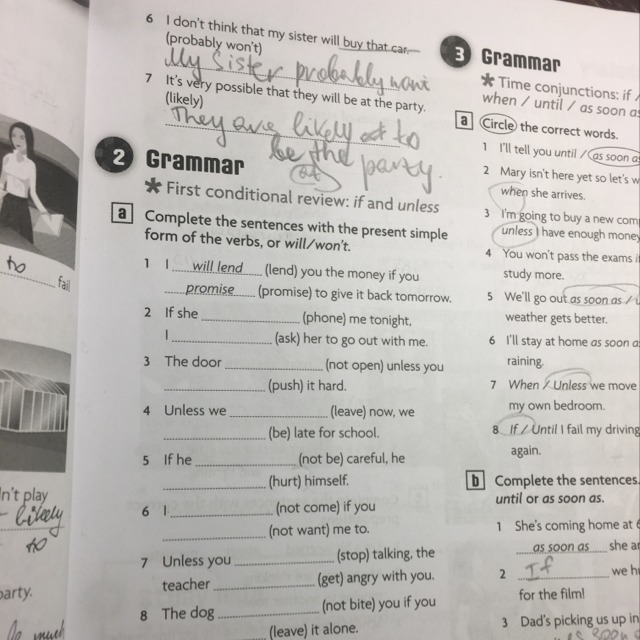 to fail
n't play
likely
to
party.
6 I don't think that my sister will buy that car.
(probably won't)
My sister probably wont
7 It's very possible that they will be at the party.
(likely)
They are likely to
be at the party.
2 Grammar
* First conditional review: if and unless
a Complete the sentences with the present simple
form of the verbs, or will/won't.
1 I will lend (lend) you the money if you
promise (promise) to give it back tomorrow.
2 If she (phone) me tonight,
I (ask) her to go out with me.
3 The door (not open) unless you
(push) it hard.
4 Unless we (leave) now, we
(be) late for school.
5 If he (not be) careful, he
(hurt) himself.
6 I (not come) if you
(not want) me to.
7 Unless you (stop) talking, the
teacher (get) angry with you.
8 The dog (not bite) you if you
(leave) it alone.
3 Grammar
* Time conjunctions: if /
when / until / as soon as
a Circle the correct words.
1 I'll tell you until / as soon as
2 Mary isn't here yet so let's
when she arrives.
3 I'm going to buy a new
unless I have enough money
4 You won't pass the exams
study more.
5 We'll go out as soon as /
weather gets better.
6 I'll stay at home as soon
raining.
7 When / Unless we move
my own bedroom.
8 If / Until I fail my driving
again.
b Complete the sentences.
until or as soon as.
1 She's coming home at
as soon as she
2 If we
for the film!
3 Dad's picking us up